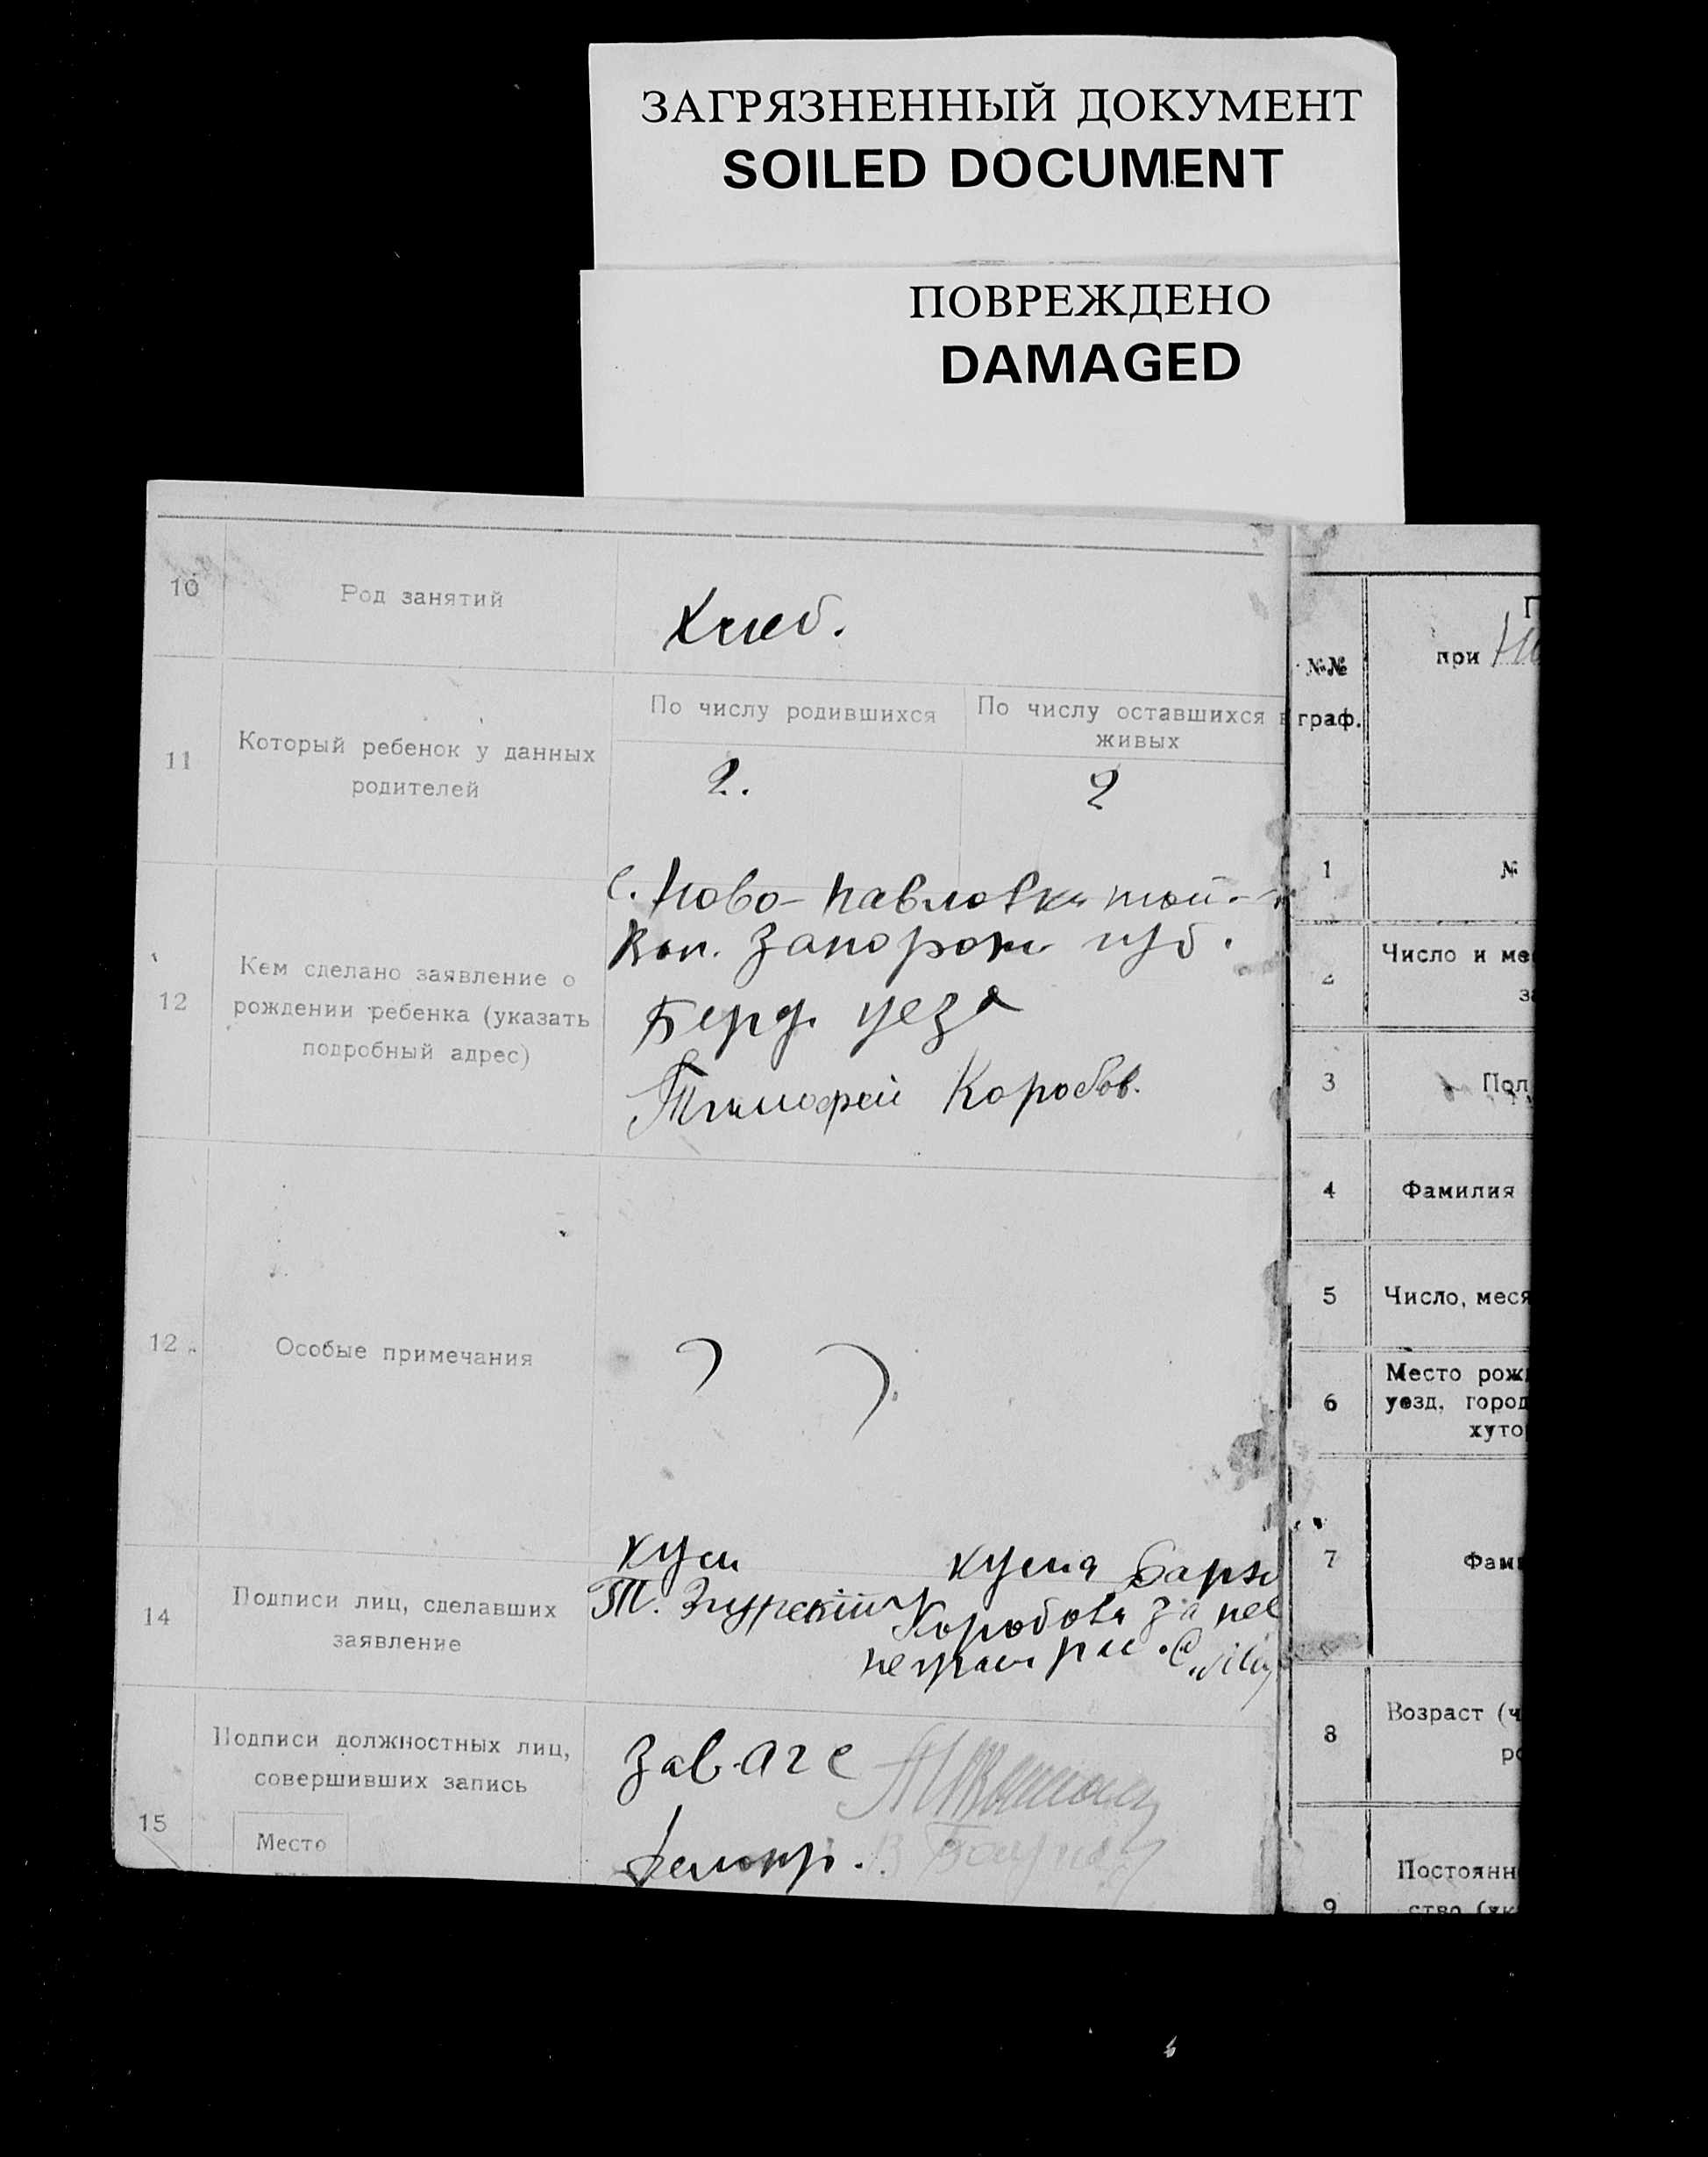 ЗАГРЯЗНЕННЫЙ ДОКУМЕНТ
SOILED DOCUMENT
ПОВРЕЖДЕНО
DAMAGED
10
Род занятий
Хлеб.
11
Который ребенок у данных
родителей
По числу родившихся
По числу оставшихся в
живых
2.
2
12
Кем сделано заявление о
рождении ребенка (указать
подробный адрес)
с. Ново-Павловка той-
Вол. Запорож губ.
Берд. уезд
Тимофей Коробов.
12
Особые примечания
14
Подписи лиц, сделавших
заявление
кум
Т.
кума
Коробова за нее
неграм рас.
15
Подписи должностных лиц,
совершивших запись
Место
Зав. АГС
Делопр.
№№
граф.
при
1
№
2
Число и ме
за
3
Пол
4
Фамилия
5
Число, меся
6
Место рож
уезд, город
хуто
7
Фам
8
Возраст (ч
ро
9
Постоянн
ство (ук